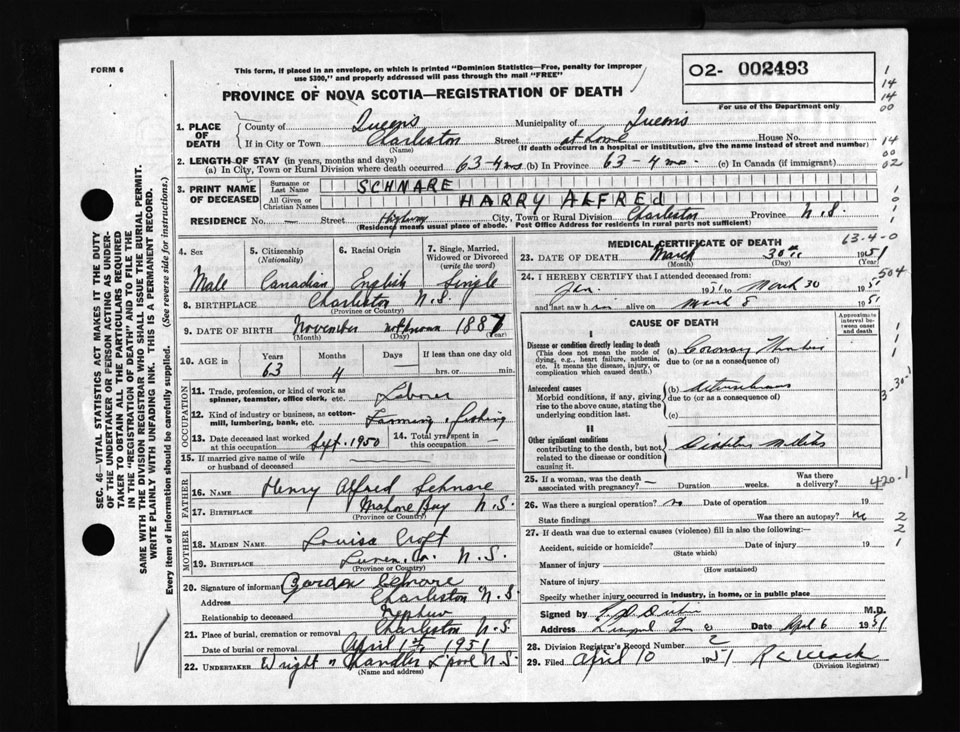 FORM 6
This form, if placed in an envelope, on which is printed "Dominion Statistics—Free, penalty for improper
use $300," and properly addressed will pass through the mail "FREE"
PROVINCE OF NOVA SCOTIA—REGISTRATION OF DEATH
O2- 002493
For use of the Department only
1. PLACE OF DEATH
County of Queens Municipality of Queens
If in City or Town Charleston Street at home House No.
(Name) (If death occurred in a hospital or institution, give the name instead of street and number)
2. LENGTH OF STAY (in years, months and days)
(a) In City, Town or Rural Division where death occurred 63-4 mo (b) In Province 63-4 mo. (c) In Canada (if immigrant)
3. PRINT NAME OF DECEASED
Surname or Last Name SCHNARE
All Given or Christian Names HARRY ALFRED
RESIDENCE No. — Street Highway City, Town or Rural Division Charleston Province N.S.
(Residence means usual place of abode. Post Office Address for residents in rural parts not sufficient)
4. Sex Male
5. Citizenship (Nationality) Canadian
6. Racial Origin English
7. Single, Married, Widowed or Divorced (write the word) Single
8. BIRTHPLACE Charleston N.S.
(Province or Country)
9. DATE OF BIRTH November not known 1887
(Month) (Day) (Year)
10. AGE Years 63 Months 4 Days — If less than one day old
hrs. or min.
OCCUPATION
11. Trade, profession, or kind of work as spinner, teamster, office clerk, etc. Labour
12. Kind of industry or business, as cotton-mill, lumbering, bank, etc. Farming, fishing
13. Date deceased last worked at this occupation Sept. 1950 14. Total yrs. spent in this occupation —
15. If married give name of wife or husband of deceased
FATHER
16. NAME Henry Alfred Schnare
17. BIRTHPLACE Mahone Bay N.S.
(Province or Country)
MOTHER
18. MAIDEN NAME Louisa Croft
19. BIRTHPLACE Lunen. Co. N.S.
(Province or Country)
20. Signature of informant Gordon Schnare
Address Charleston N.S.
Relationship to deceased Nephew
21. Place of burial, cremation or removal Charleston N.S
Date of burial or removal April 1st 1951
22. UNDERTAKER Wright n Chandler L'pool N.S.
(Name and address)
MEDICAL CERTIFICATE OF DEATH
63-4-0
23. DATE OF DEATH March 30th 1951
(Month) (Day) (Year)
504
24. I HEREBY CERTIFY that I attended deceased from:
Jan. 1951 to March 30 1951
and last saw him alive on March 8 1951
CAUSE OF DEATH
Approximate interval between onset and death
I
Disease or condition directly leading to death
(This does not mean the mode of dying, e.g., heart failure, asthenia, etc. It means the disease, injury, or complication which caused death.)
(a) Coronary
due to (or as a consequence of)
Antecedent causes
Morbid conditions, if any, giving rise to the above cause, stating the underlying condition last.
(b)
due to (or as a consequence of)
(c)
II
Other significant conditions
contributing to the death, but not related to the disease or condition causing it.
Diabetes Mellitus
25. If a woman, was the death associated with pregnancy? — Duration weeks. Was there a delivery?
420-1
26. Was there a surgical operation? no Date of operation 19
State findings Was there an autopsy? no
27. If death was due to external causes (violence) fill in also the following:—
Accident, suicide or homicide? Date of injury 19
(State which)
Manner of injury
(How sustained)
Nature of injury
Specify whether injury occurred in industry, in home, or in public place
Signed by M.D.
Address Date April 6 1951
28. Division Registrar's Record Number 2
29. Filed April 10 1951
(Division Registrar)
SEC. 46—VITAL STATISTICS ACT MAKES IT THE DUTY
OF THE UNDERTAKER OR PERSON ACTING AS UNDERTAKER
TO OBTAIN ALL THE PARTICULARS REQUIRED
IN THE "REGISTRATION OF DEATH" AND TO FILE THE
SAME WITH THE DIVISION REGISTRAR WHO SHALL ISSUE THE BURIAL PERMIT.
WRITE PLAINLY WITH UNFADING INK. THIS IS A PERMANENT RECORD.
Every item of information should be carefully supplied. (See reverse side for instructions.)